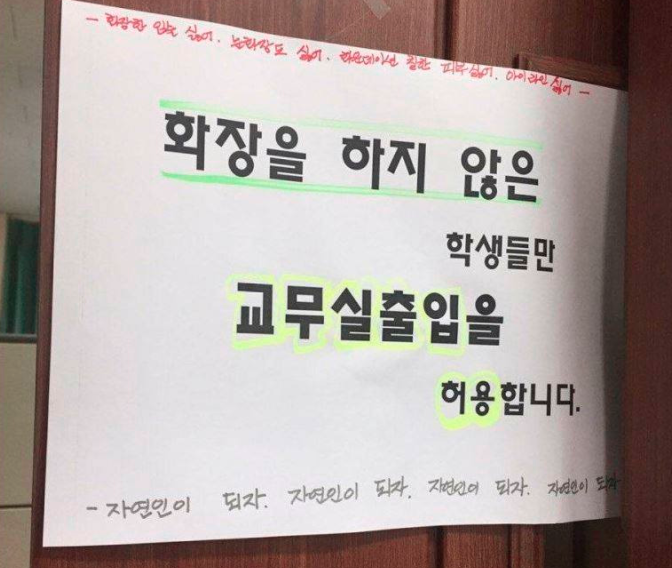 - 화장한 입술 싫어. 눈화장도 싫어. 화운데이션 칠한 피부 싫어. 아이라인 싫어 -
화장을 하지 않은
학생들만
교무실출입을
허용합니다.
- 자연인이 되자. 자연인이 되자. 자연인이 되자. 자연인이 되자